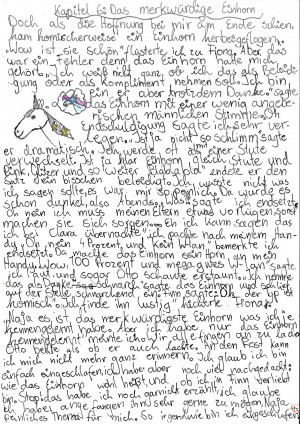 Kapitel 6: Das merkwürdige Einhorn
Doch als die Hoffnung bei mir am Ende schien,
kam komischerweise ein Einhorn herbeigeflogen.
"Wow ist sie schön" flüsterte ich zu Fiona. Aber das
war ein Fehler denn das Einhorn hatte mich
gehört. "Ich weiß nicht ganz ob ich das als Beleidi-
gung oder als Kompliment nehmen soll. Ich bin
ein er aber trotzdem Danke." sagte
das Einhorn mit einer wenig angeb-
erischen männlichen Stimme. "Oh
Endschuldigung" sagte ich sehr ver-
legen. "Ist nicht so schlimm" sagte
er dramatisch. "Ich werde oft mit einer Stute
verwechselt. Ist ja klar Einhorn gleich Stute und
Pink, Glitzer und so weiter Bladabla" endete er den
Satz ein bisschen beleidigt. Ich wusste nicht was
ich sagen sollte, es war mir so peinlich. "Da wurde es
schon dunkel, also Abends." "was" sagte ich endsetzt
"Oh nein ich muss meinen Eltern etwas vorlügen, sonst
machen sie sich sorgen." "Ein ich kann sagen das
ich bei Clara übernachte". Ich packte nach meinem Han-
dy. "Oh nein 4 Prozent, und kein Wlan" bemerkte ich
endsetzt. Da machte das Einhorn sein Horn an mein
Handy. "Wow 100 Prozent und mega gutes Wlan" sagte
ich laut und sogar Otto schaute erstaunt. "Ich nehme
das als Danke" sagte das Einhorn und schlief
auf der Stelle schnarchend ein. "Hm" sagte Otto "der ist
komisch". "Ich finde ihn lustig" kicherte Fiona.
Naja es ist, das merkwürdigste Einhorn was ich je
kennengelernt habe. Aber ich habe nur das Einhorn
kennengelernt" meinte ich. Wir alle fingen an zu lachen
Otto bellte als ob er auch lachte. An den Rest kann
ich mich nicht mehr ganz erinnern. Ich glaub ich bin
einfach eingeschlafen, ich habe aber noch viel nachgedacht:
wie das Einhorn wohl heißt, und ob ich in ihn verliebt
bin. Stop! das habe ich noch garnicht erzählt, ich glaube
ich habe angefangen ihn sehr gerne zu mögen. Naja
peinliches Thema für mich. So irgendwie bin ich eingeschlafen